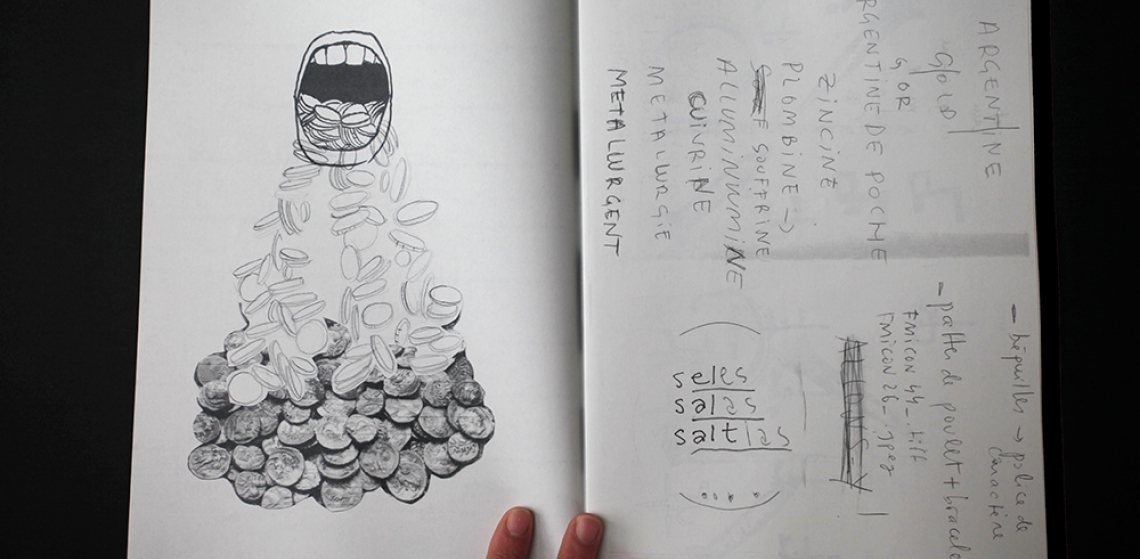 ARGENTINE
G/OLD
G OR
RGENTINE DE POCHE
ZINCINE
PLOMBINE →
SOUFFRINE
ALLUMINUMINE
CUIVRINE
METALWRGIE
METALWRGENT
- béquilles → police de
caractère
- pattes de poulet + bracele
FMICON 44_.tiff
FMICON 26_.jpeg
seles
salas
saltlas